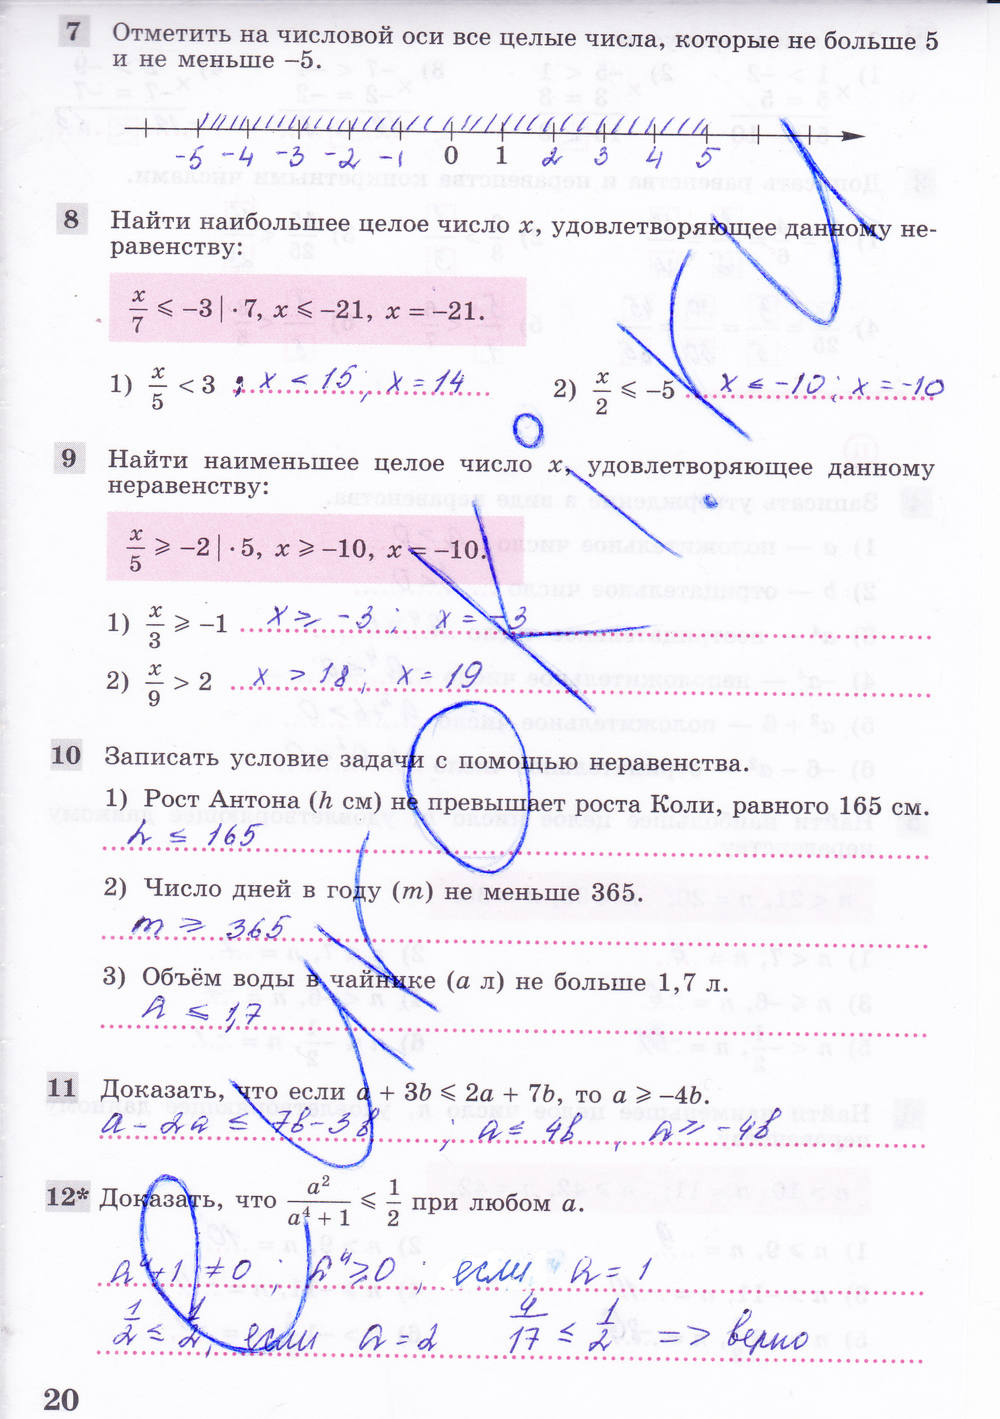 7 Отметить на числовой оси все целые числа, которые не больше 5
и не меньше –5.
-5 -4 -3 -2 -1 0 1 2 3 4 5
8 Найти наибольшее целое число x, удовлетворяющее данному не-
равенству:
x/7 ⩽ –3 | · 7, x ⩽ –21, x = –21.
1) x/5 < 3 ; x < 15; x = 14
2) x/2 ⩽ –5 x ⩽ -10; x = -10
9 Найти наименьшее целое число x, удовлетворяющее данному
неравенству:
x/5 ⩾ –2 | · 5, x ⩾ –10, x = –10.
1) x/3 ⩾ –1 x ⩾ -3; x = -3
2) x/9 > 2 x > 18; x = 19
10 Записать условие задачи с помощью неравенства.
1) Рост Антона (h см) не превышает роста Коли, равного 165 см.
h ⩽ 165
2) Число дней в году (m) не меньше 365.
m ⩾ 365
3) Объём воды в чайнике (a л) не больше 1,7 л.
a ⩽ 1,7
11 Доказать, что если a + 3b ⩽ 2a + 7b, то a ⩾ –4b.
a - 2a ⩽ 7b - 3b ; a ⩽ 4b , a ⩾ -4b
12* Доказать, что a²/(a⁴ + 1) ⩽ 1/2 при любом a.
a⁴+1 ≠ 0 ; a⁴ ⩾ 0 ; если a = 1
1/2 ⩽ 1/2, если a = 2 4/17 ⩽ 1/2 => верно
20